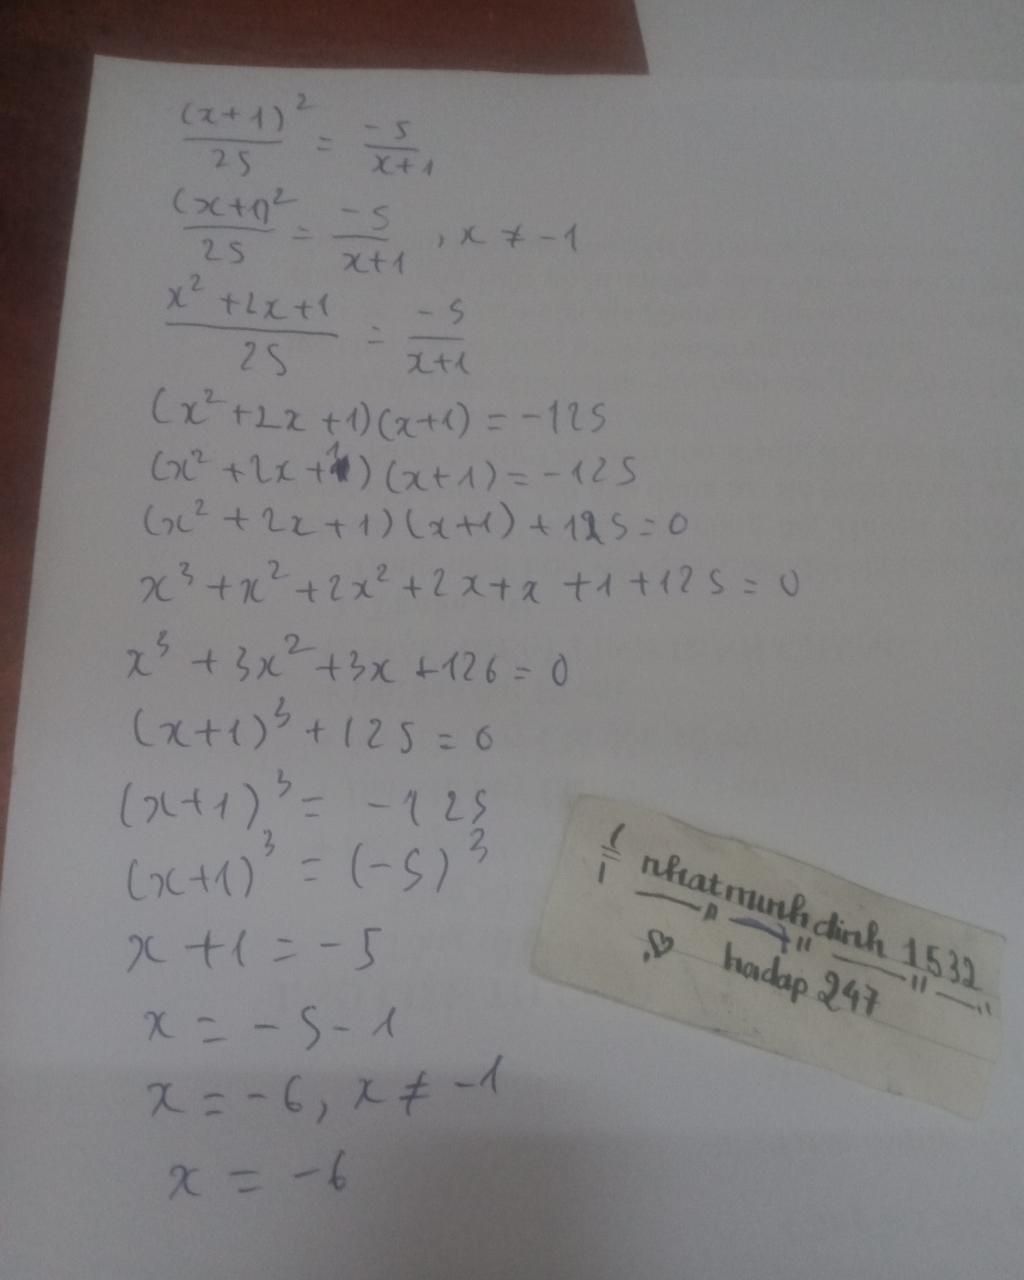 (x+1)² / 25 = -5 / x+1
(x+1)² / 25 = -5 / x+1 , x ≠ -1
x² + 2x + 1 / 25 = -5 / x+1
(x² + 2x + 1)(x+1) = -125
(x² + 2x + 1)(x+1) = -125
(x² + 2x + 1)(x+1) + 125 = 0
x³ + x² + 2x² + 2x + x + 1 + 125 = 0
x³ + 3x² + 3x + 126 = 0
(x+1)³ + 125 = 0
(x+1)³ = -125
(x+1)³ = (-5)³
x + 1 = -5
x = -5 - 1
x = -6, x ≠ -1
x = -6
nhatminhdinh 1532
hoidap 247